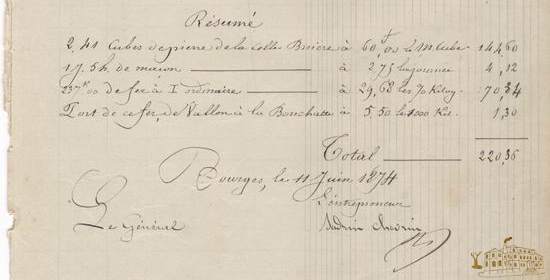 Résumé
2,41 Cubes de pierre de la Celle Bruère à 60,00 le M Cube 144,60
1 J. 5 h. de maçon à 2,75 la journée 4,12
237k,00 de fer à I ordinaire à 29,68 les % Kilog 70,34
Port de ce fer, de Vallon à la Bouchatte à 5,50 les 1000 Kil. 1,30
Total 220,36
Bourges, le 11 Juin 1874
L'entrepreneur
Le Général